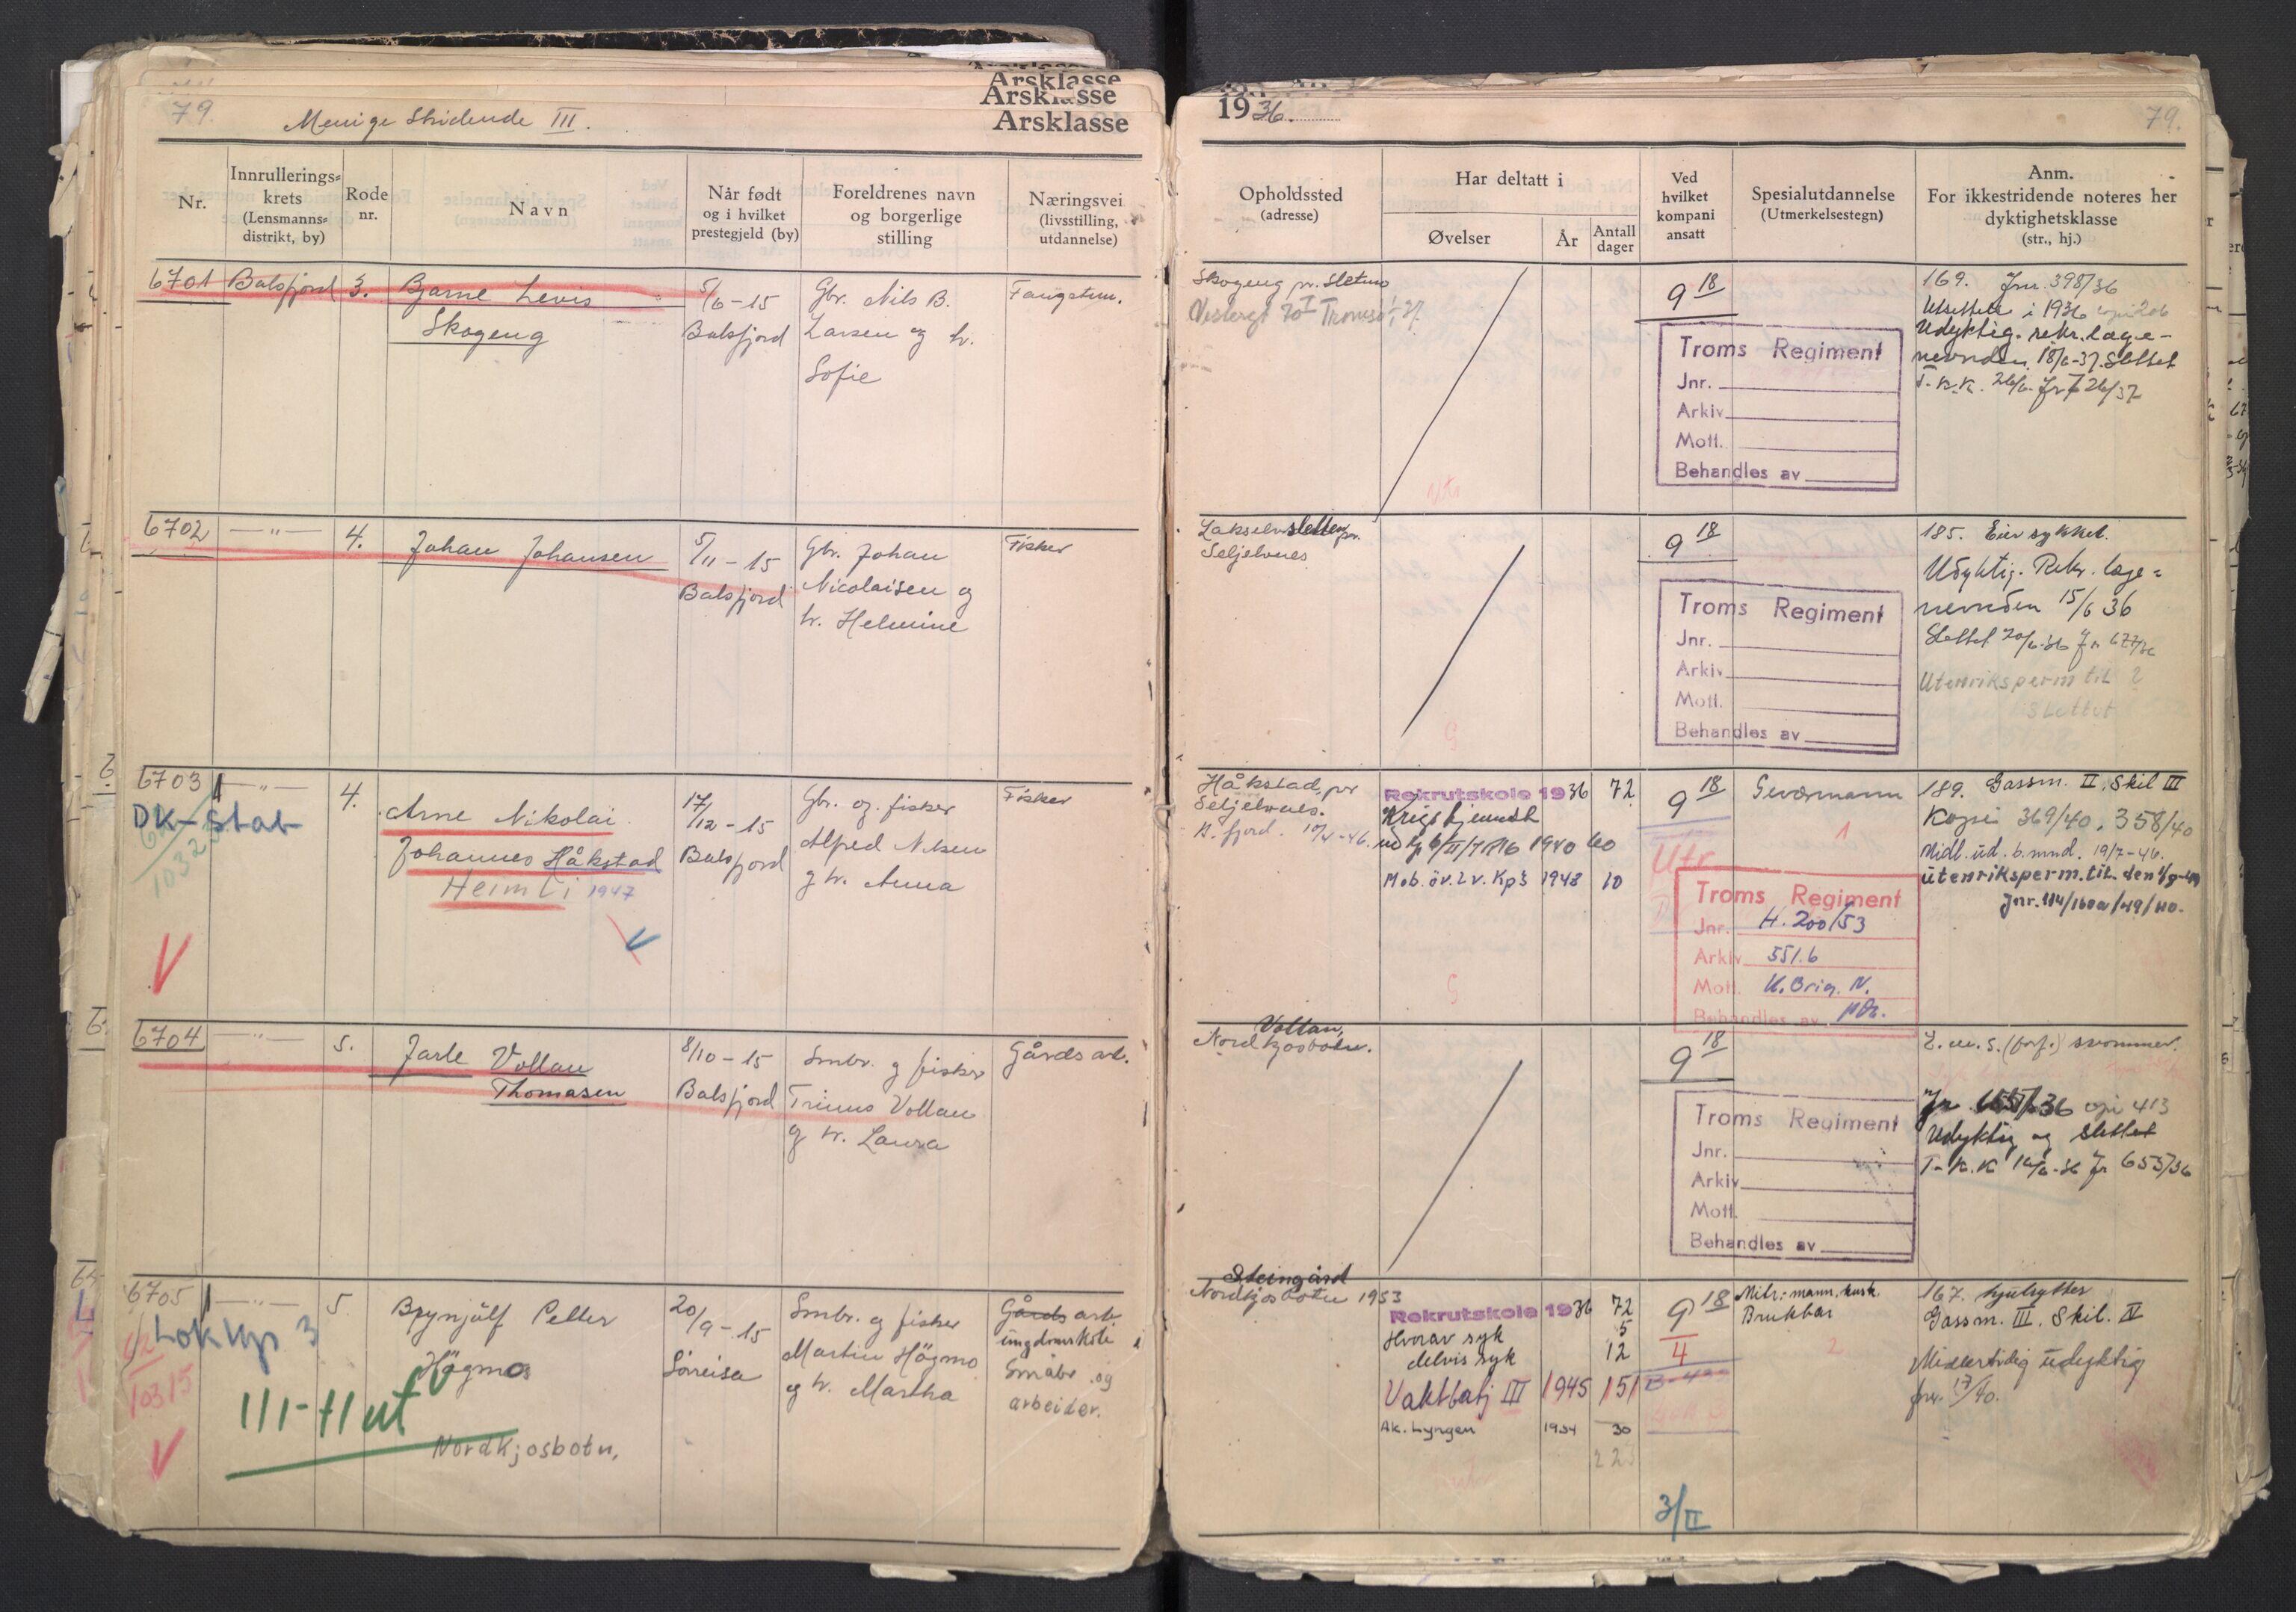 79.
Menige Stridende III.
Årsklasse
Årsklasse
Årsklasse
Nr.
Innrullerings=
krets
(Lensmanns=
distrikt, by)
Rode
nr.
Navn
Når født
og i hvilket
prestegjeld (by)
Foreldrenes navn
og borgerlige
stilling
Næringsvei
(livsstilling,
utdannelse)
6701 Balsfjord 3. Bjarne Levis
Skogeng
5/6 - 15
Balsfjord
Gbr. Nils B.
Larsen og h.
Sofie
Fangstm.
6702 —"— 4. Johan Johansen
5/11 - 15
Balsfjord
Gbr. Johan
Nicolaisen og
h. Helmine
Fisker
6703 —"— 4.
DK-Stab
Arne Nikolai
Johannes Håkstad
Heimli 1947
17/12 - 15
Balsfjord
Gbr. og fisker
Alfred Nilsen
og h. Anna
Fisker
6704 —"— 5. Jarle Vollan
Thomasen
8/10 - 15
Balsfjord
Smbr. og fisker
Trinus Vollan
og h. Laura
Gårdsarb.
6705 —"— 5. Brynjulf Petter
Högmo
Lok Kp 3
10315
III-Hut
Nordkjosbotn,
20/9 - 15
Sörreisa
Smbr. og fisker
Martin Högmo
og h. Martha
Gårdsarb.
ungdomskole
Småbr. og
arbeider.
1936.
79.
Opholdssted
(adresse)
Har deltatt i
Øvelser
År
Antall
dager
Ved
hvilket
kompani
ansatt
Spesialutdannelse
(Utmerkelsestegn)
Anm.
For ikkestridende noteres her
dyktighetsklasse
(str., hj.)
Skogeng pr. Sletmo
Vestergt 70 I Tromsø
9 18
Troms Regiment
Jnr.
Arkiv
Mott.
Behandles av
169. Jnr. 398/36
Utsettelse i 1936 kopi 206
Udyktig. rekr. læge-
nevnden 18/6-37. Slettet
T.K.K. 26/6. Jr 726/37
Lakselvsletten pr.
Seljelvnes
9 18
Troms Regiment
Jnr.
Arkiv
Mott.
Behandles av
185. Eier sykkel.
Udyktig. Rekr. læge=
nevnden 15/6 36
Slettet 20/6-36 Jr 677/36
Utenriksperm til ?
Slettet
Håkstad, pr
Seljelvnes.
Rekrutskole 1936 72
1940 60
Mob. öv. Lv. Kp's 1948 10
9 18
Utr
Geværmann
1
Troms Regiment
Jnr. H. 200/53
Arkiv 551.6
Mott. K. Brig. N.
Behandles av
189. Gassm. II, Skil III
Kopi 369/40, 358/40
Midl. ud. b. mnd. 19/7-46.
utenriksperm. til den
Jnr. 114/160a/49/
Vollan,
Nordkjosbotn.
9 18
Troms Regiment
Jnr.
Arkiv
Mott.
Behandles av
L.m.S. (forf.) svømmer.
36 kopi 413
Udyktig og slettet
T.K.K 16/6-36 Jr 653/36
Steingård
Nordkjosbotn 1953
Rekrutskole 1936 72
Hvorav syk 5
delvis syk 12
Vaktbatj III 1945 151
Ak. Lyngen 1954 30
9 18
4
3/II
Mitr.-mann, kusk
Brukbar
2
167. hjulrytter
Gassm. III. Skil. IV
Midlertidig udyktig